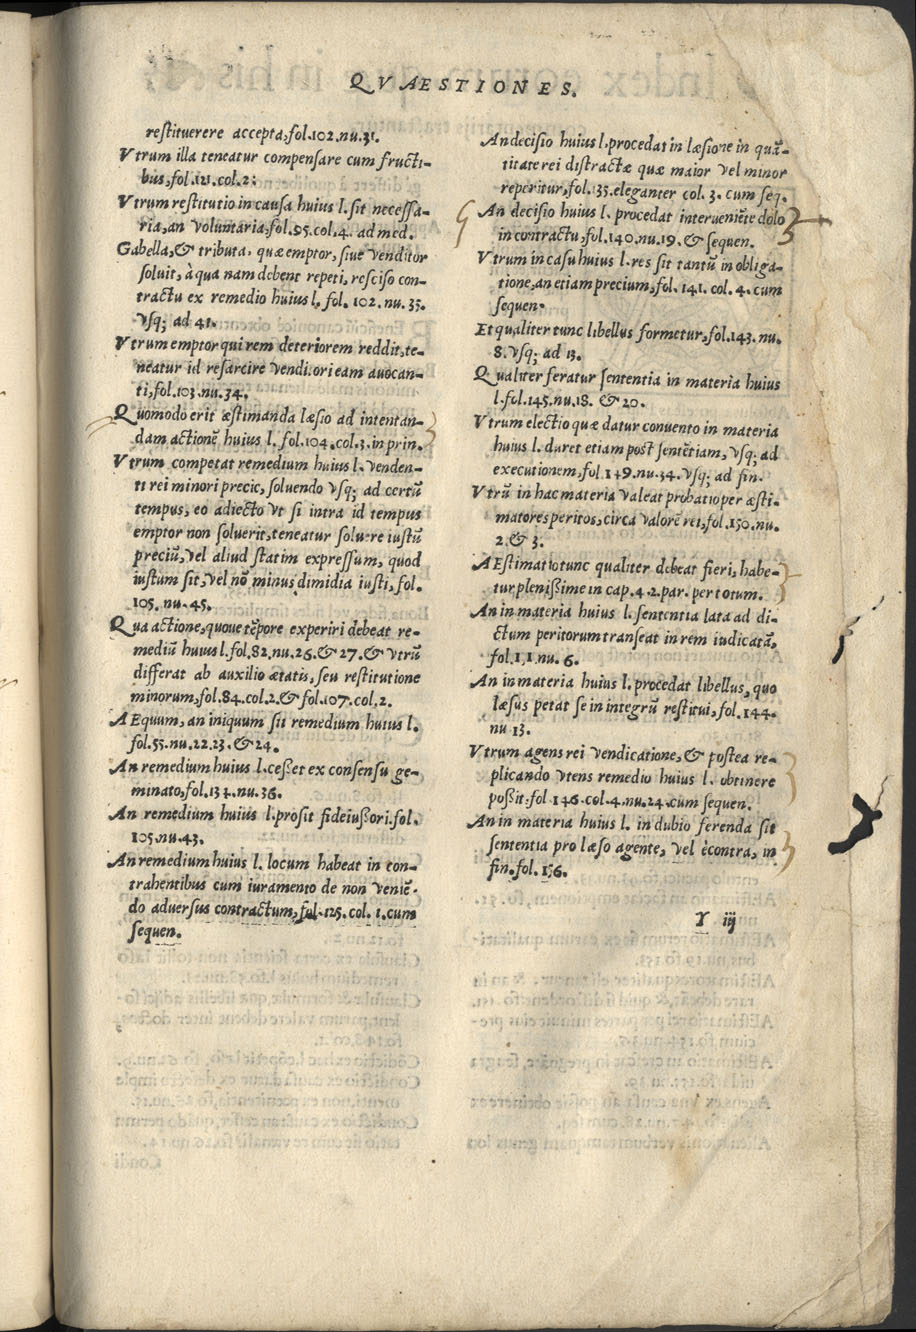 QVAESTIONES.
restituerere accepta, fol.102.nu.31.
Vtrum illa teneatur compensare cum fructi-
bus, fol.121.col.2:
Vtrum restitutio in causa huius l. sit necessa-
ria, an voluntaria, fol.95.col.4. ad med.
Gabella, & tributa, quæ emptor, siue venditor
soluit, à qua nam debent repeti, resciso con-
tractu ex remedio huius l, fol. 102. nu. 35.
vsq; ad 41.
Vtrum emptor qui rem deteriorem reddit, te-
neatur id resarcire vendi.ori eam auocan-
ti, fol.103.nu.34.
Quomodo erit æstimanda læsio ad intentan-
dam actionē huius l. fol.104.col.3.in prin.
Vtrum competat remedium huius l. venden-
ti rei minori precic, soluendo vsq; ad certū
tempus, eo adiecto vt si intra id tempus
emptor non soluerit, teneatur soluere iustū
preciū, vel aliud statim expressum, quod
iustum sit, vel nō minus dimidia iusti, fol.
105. nu. 45.
Qua actione, quoue tēpore experiri debeat re-
mediū huius l. fol.82.nu.26.& 27.& vtrū
differat ab auxilio ætatis, seu restitutione
minorum, fol.84.col.2.& fol.107.col.2.
AEquum, an iniquum sit remedium huius l.
fol.55.nu.22.23.& 24.
An remedium huius l. cesset ex consensu ge-
minato, fol.134.nu.36.
An remedium huius l. prosit fideiussori. fol.
105.nu.43.
An remedium huius l. locum habeat in con-
trahentibus cum iuramento de non veniē-
do aduersus contractum, fol.125.col. 1.cum
sequen.
An decisio huius l. procedat in læsione in quā-
titate rei distractæ quæ maior vel minor
reperitur, fol.35.eleganter col. 3. cum seq.
An decisio huius l. procedat interueniēte dolo
in contractu, fol.140.nu.19. & sequen.
Vtrum in casu huius l. res sit tantū in obliga-
tione, an etiam precium, fol. 141. col. 4. cum
sequen.
Et qualiter tunc libellus formetur, fol.143. nu.
8. vsq; ad 13.
Qualiter feratur sententia in materia huius
l. fol.145.nu.18. & 20.
Vtrum electio quæ datur conuento in materia
huius l. duret etiam post sentētiam, vsq; ad
executionem. fol 149.nu.34. vsq; ad fin.
Vtrū in hac materia valeat probatio per æsti-
matores peritos, circa valorē rei, fol.150.nu.
2. & 3.
AEstimatio tunc qualiter debeat fieri, habe-
tur plenissime in cap. 4.2.par. per totum.
An in materia huius l. sententia lata ad di-
ctum peritorum transeat in rem iudicatā,
fol.1,1.nu. 6.
An in materia huius l. procedat libellus, quo
læsus petat se in integrū restitui, fol.144.
nu 13.
Vtrum agens rei vendicatione, & postea re-
plicando vtens remedio huius l. obtinere
possit. fol 146.col.4.nu.24.cum sequen.
An in materia huius l. in dubio ferenda sit
sententia pro læso agente, vel ècontra, in
fin. fol. 156.
Y iij